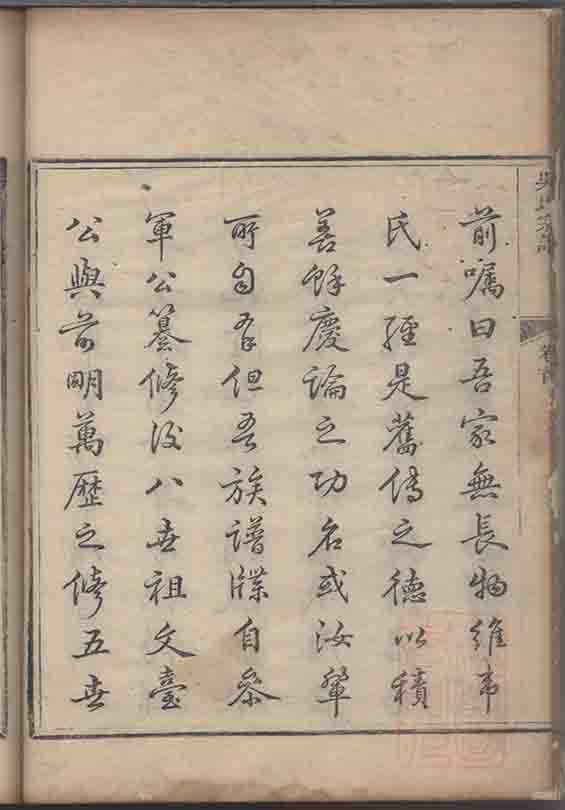 前囑曰吾家無長物維韋
氏一經是舊傳之德以積
善餘慶論之功名或汝輩
所自有但吾族譜牒自參
軍公纂修後八世祖文臺
公與前明萬歷之修五世
吳氏宗譜
卷首